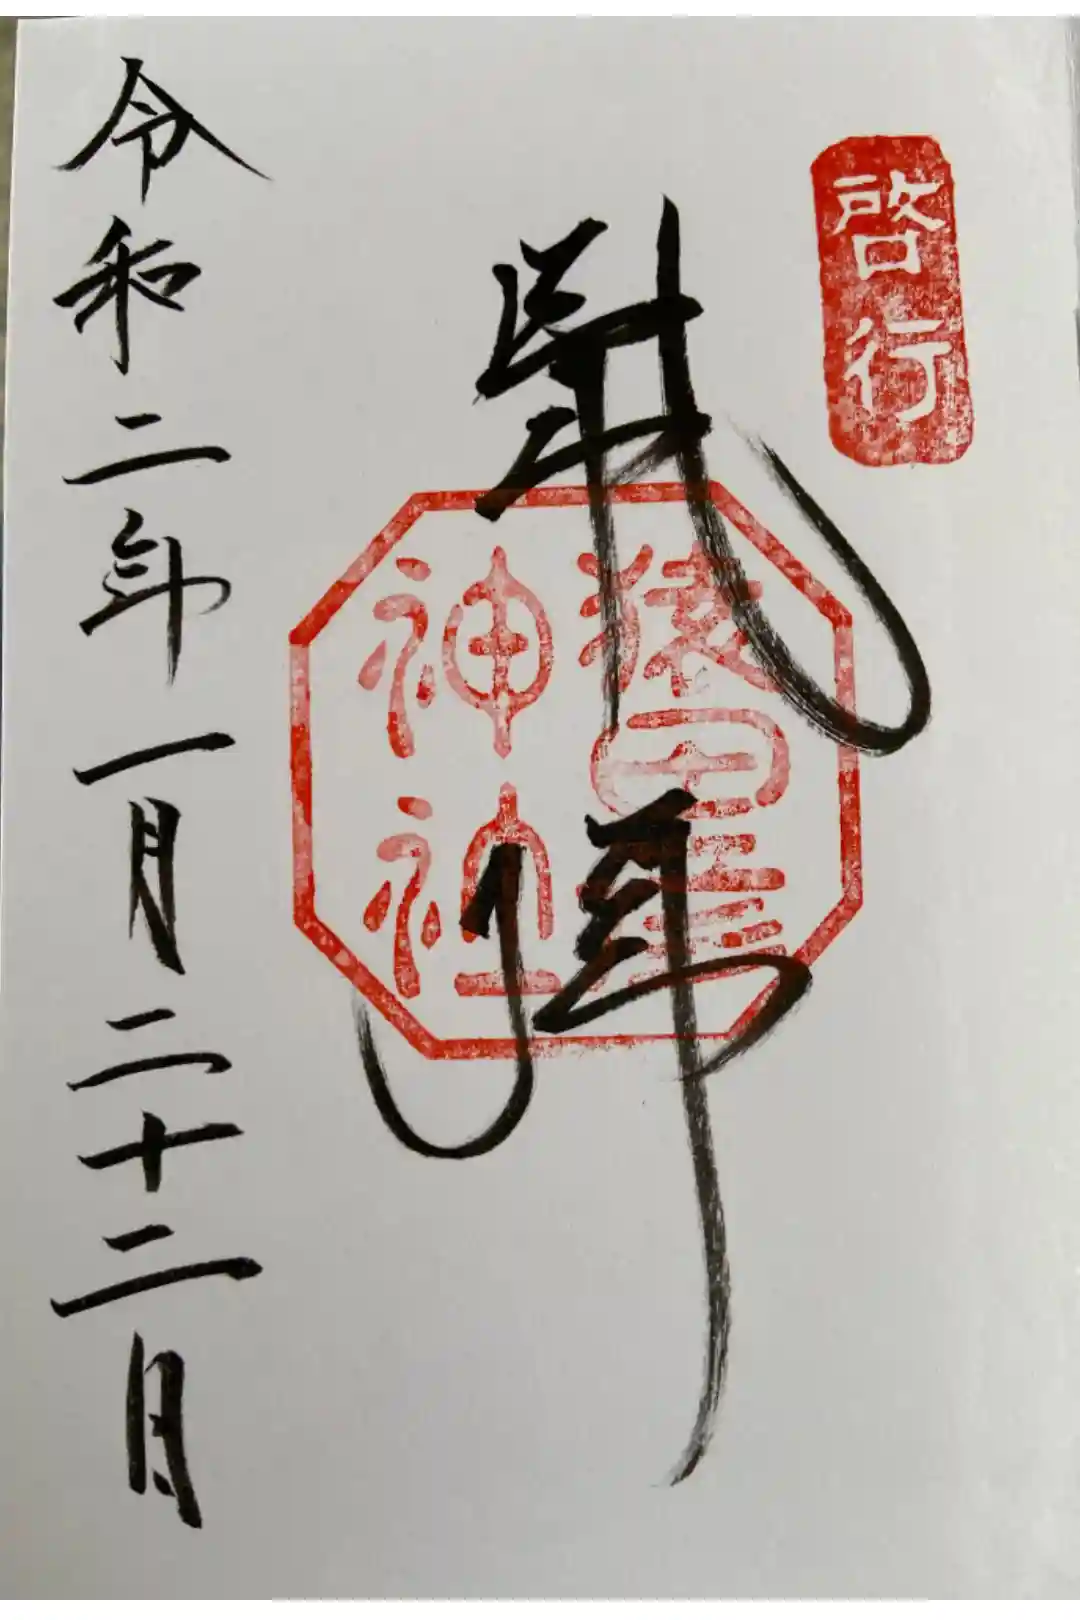 啓行
拝
猿田彦
神社
令和二年一月二十二日